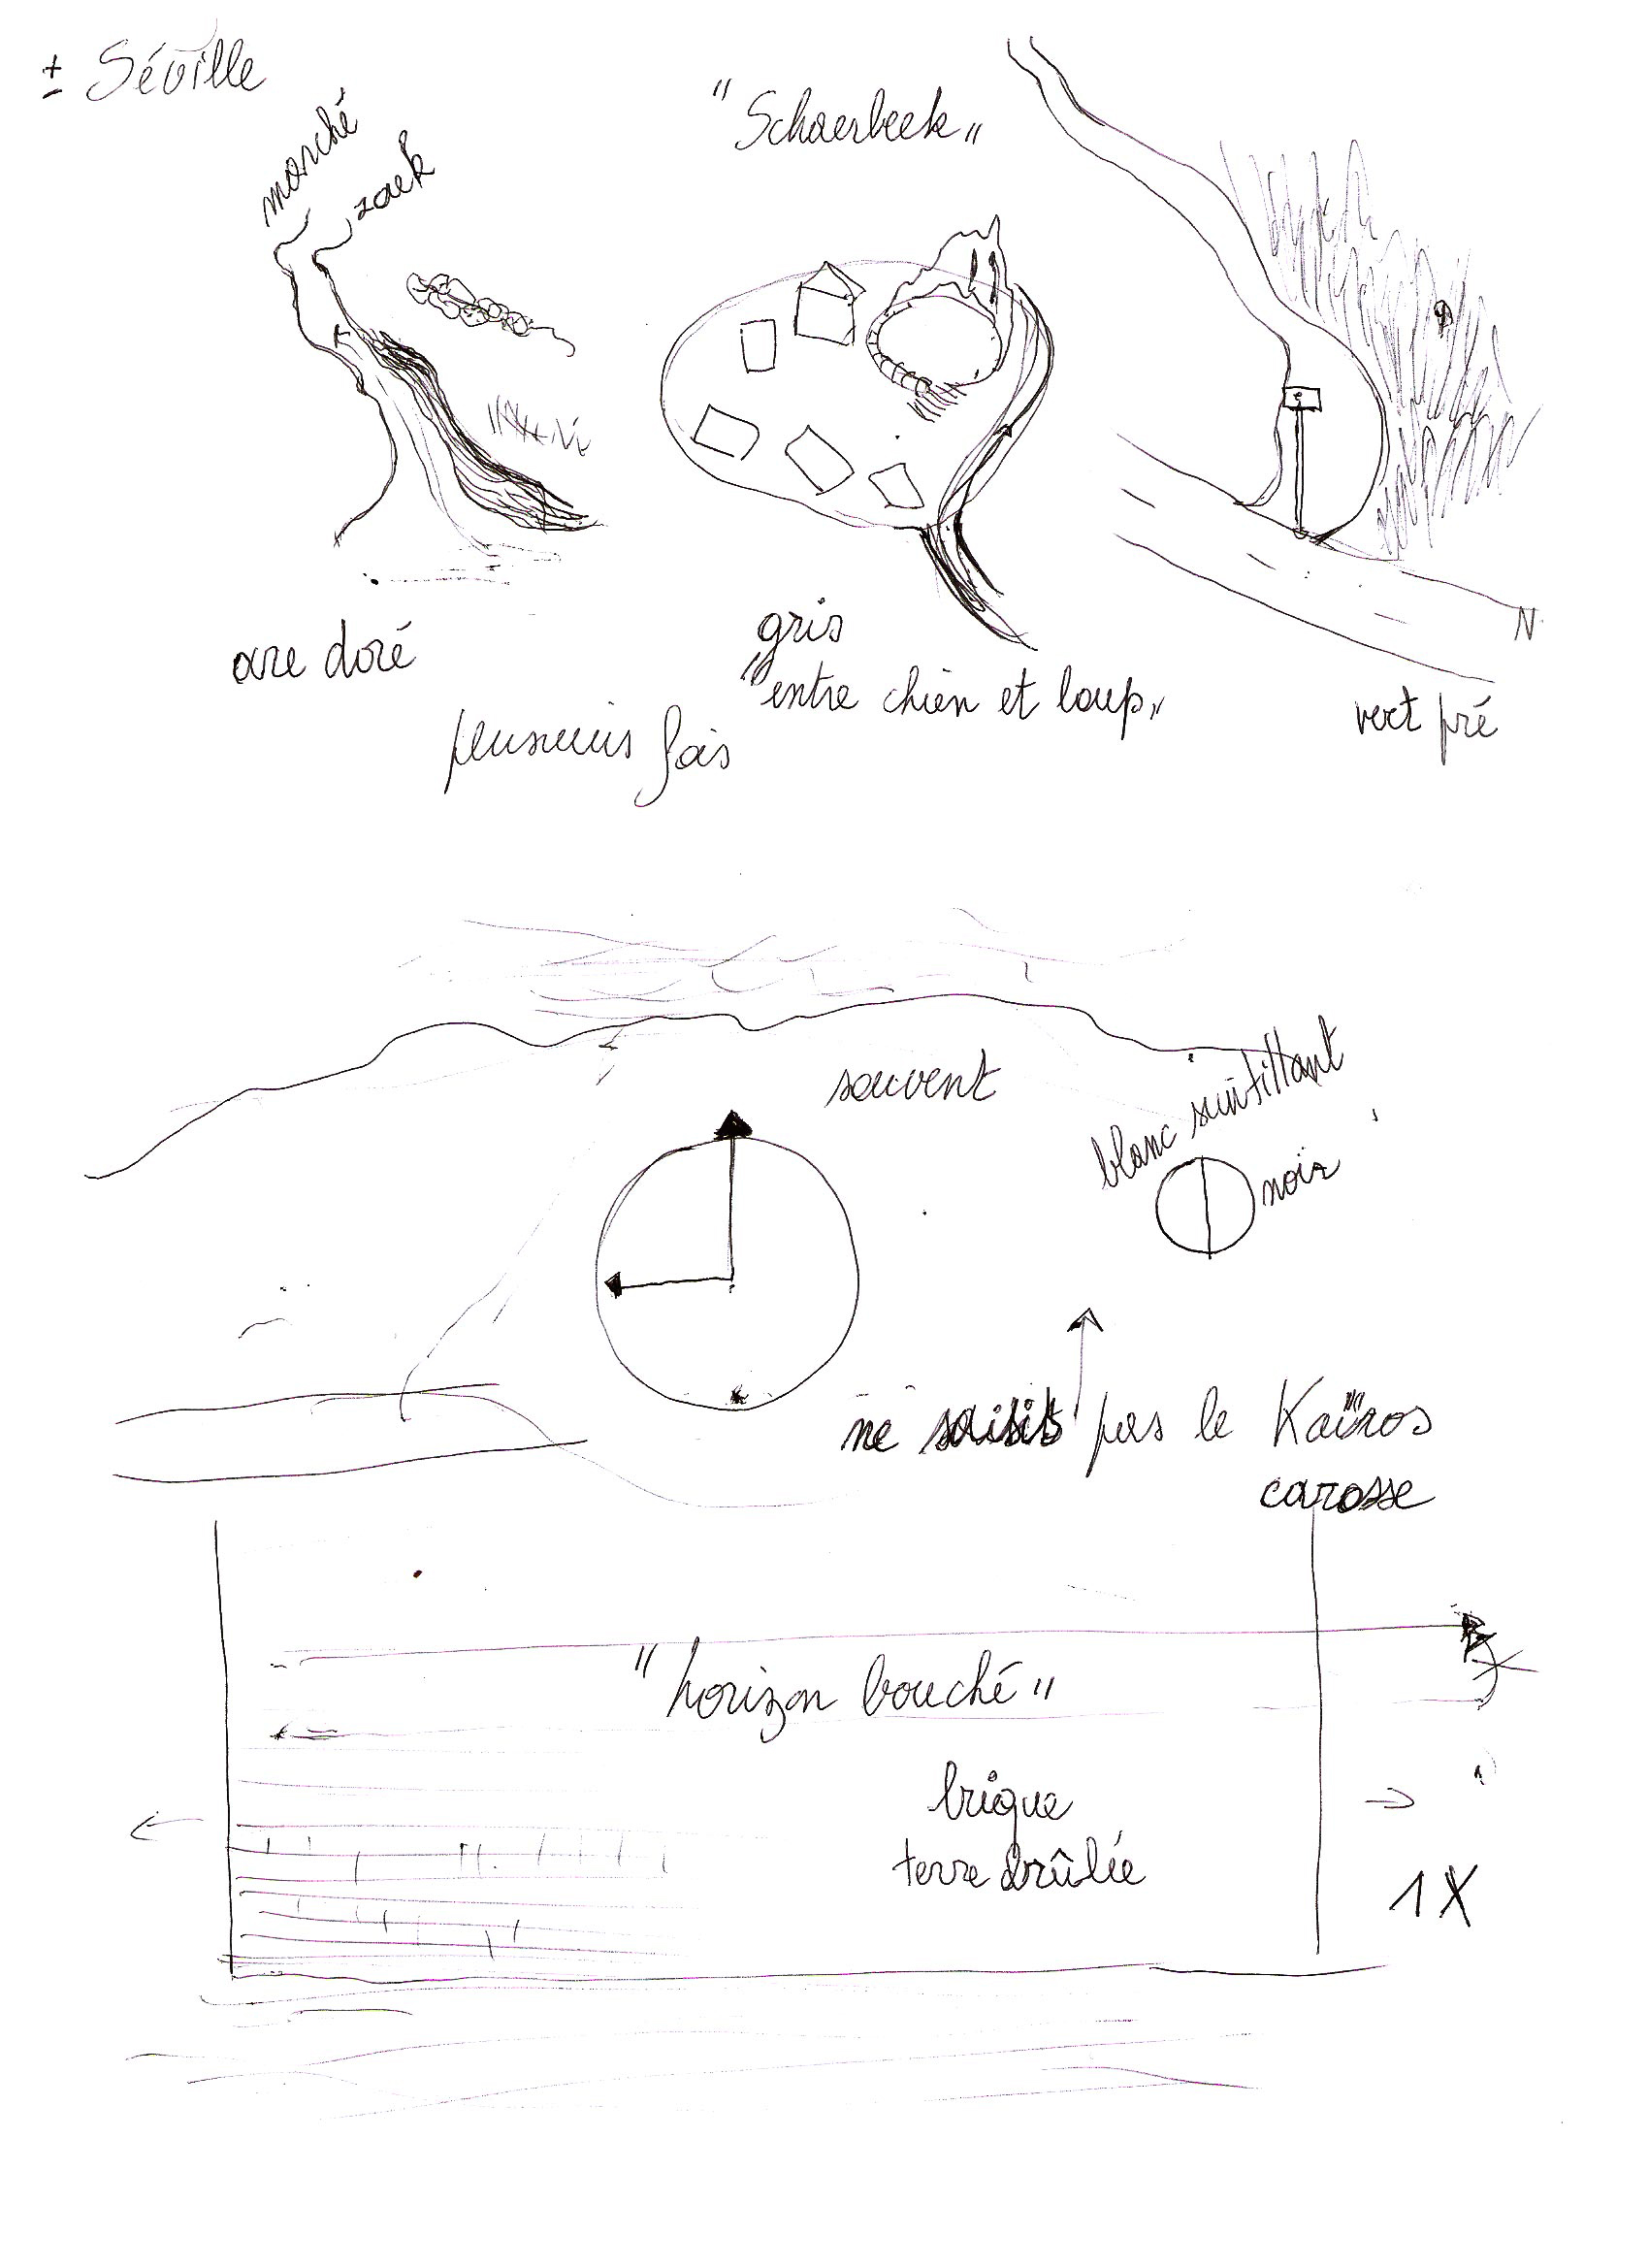 ± Séville
marché
zack
"Schaerbeek"
N
ocre doré
gris
"entre chien et loup"
vert pré
plusieurs fois
souvent
blanc scintillant
noir
ne saisit pas le Kaïros
carosse
"horizon bouché"
brique
terre brûlée
1X